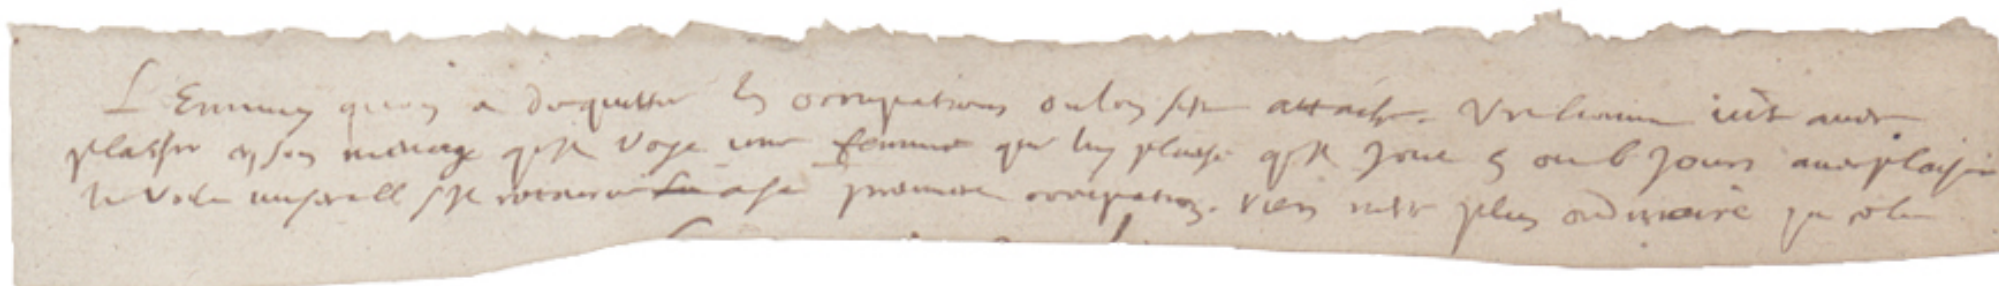 L'Ennuy qu'on a de quitter les occupations ou l'on s'est attaché. Un homme vit avec
plaisir en son menage qu'il voye une femme qui luy plaise qu'il joue 5 ou 6 jours avec plaisir
le voila miserable s'il retourne a sa premiere occupation. rien n'est plus ordinaire que cela